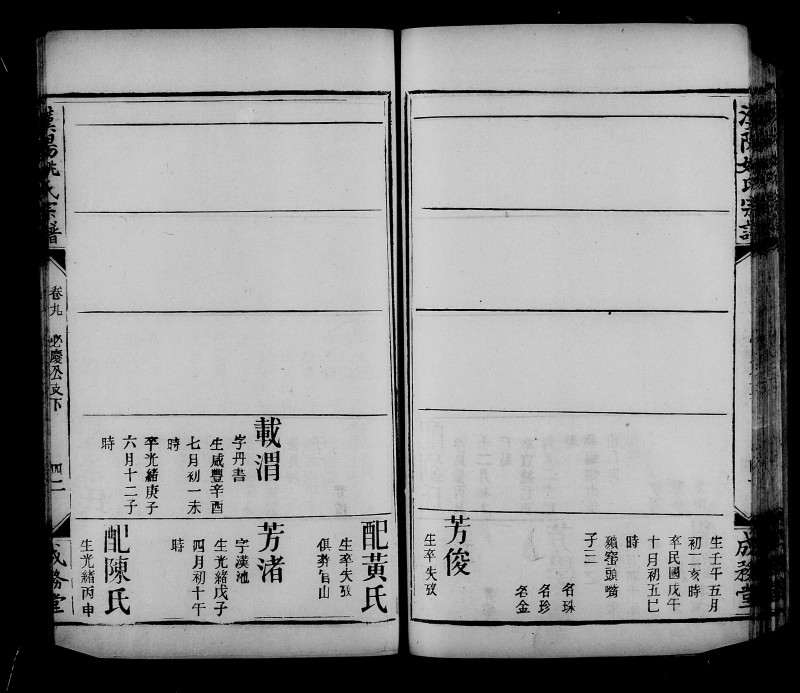 漢陽姚氏宗譜
成務堂
生壬午五月
初二亥時
卒民國戊午
十月初五巳
時
窰頭嘴
子三
名珠
名珍
名金
芳俊
生卒失攷
漢陽姚氏宗譜
卷九
必慶公支下
四二
成務堂
載渭
字丹書
生咸豐辛酉
七月初一未
時
卒光緒庚子
六月十二子
時
配黃氏
生卒失攷
俱葬官山
芳渚
字漢池
生光緒戊子
四月初十午
時
配陳氏
生光緒丙申